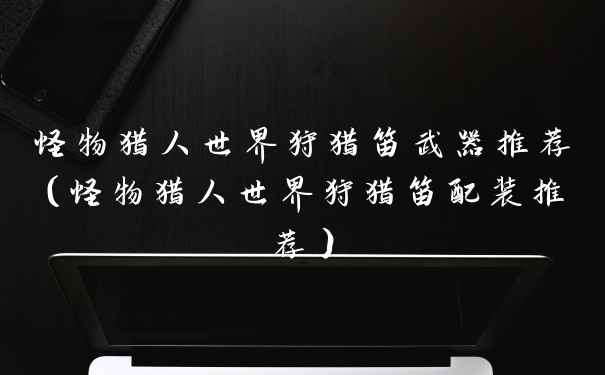 怪物猎人世界狩猎笛武器推荐
(怪物猎人世界狩猎笛配装推
荐)